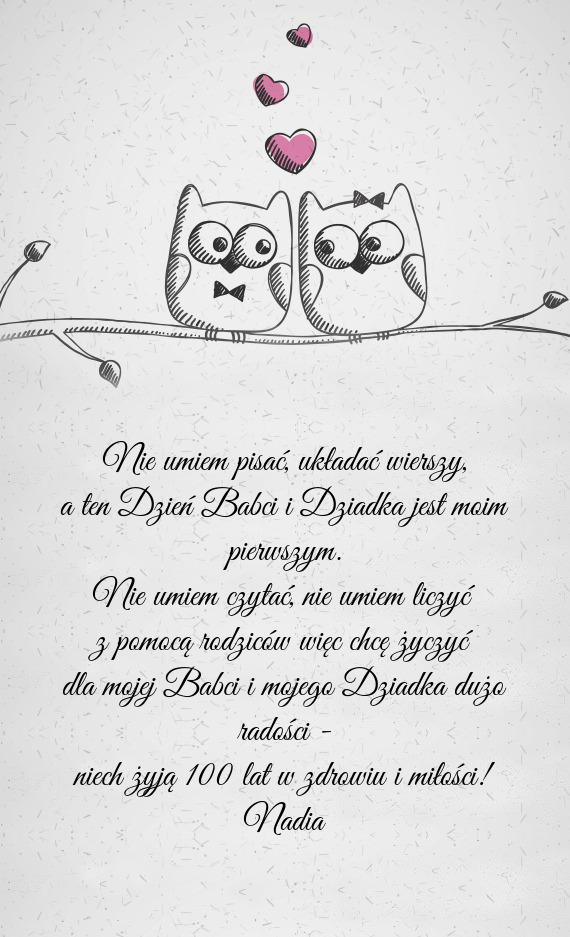 Nie umiem pisać, układać wierszy,
a ten Dzień Babci i Dziadka jest moim
pierwszym.
Nie umiem czytać, nie umiem liczyć
z pomocą rodziców więc chcę życzyć
dla mojej Babci i mojego Dziadka dużo
radości -
niech żyją 100 lat w zdrowiu i miłości!
Nadia